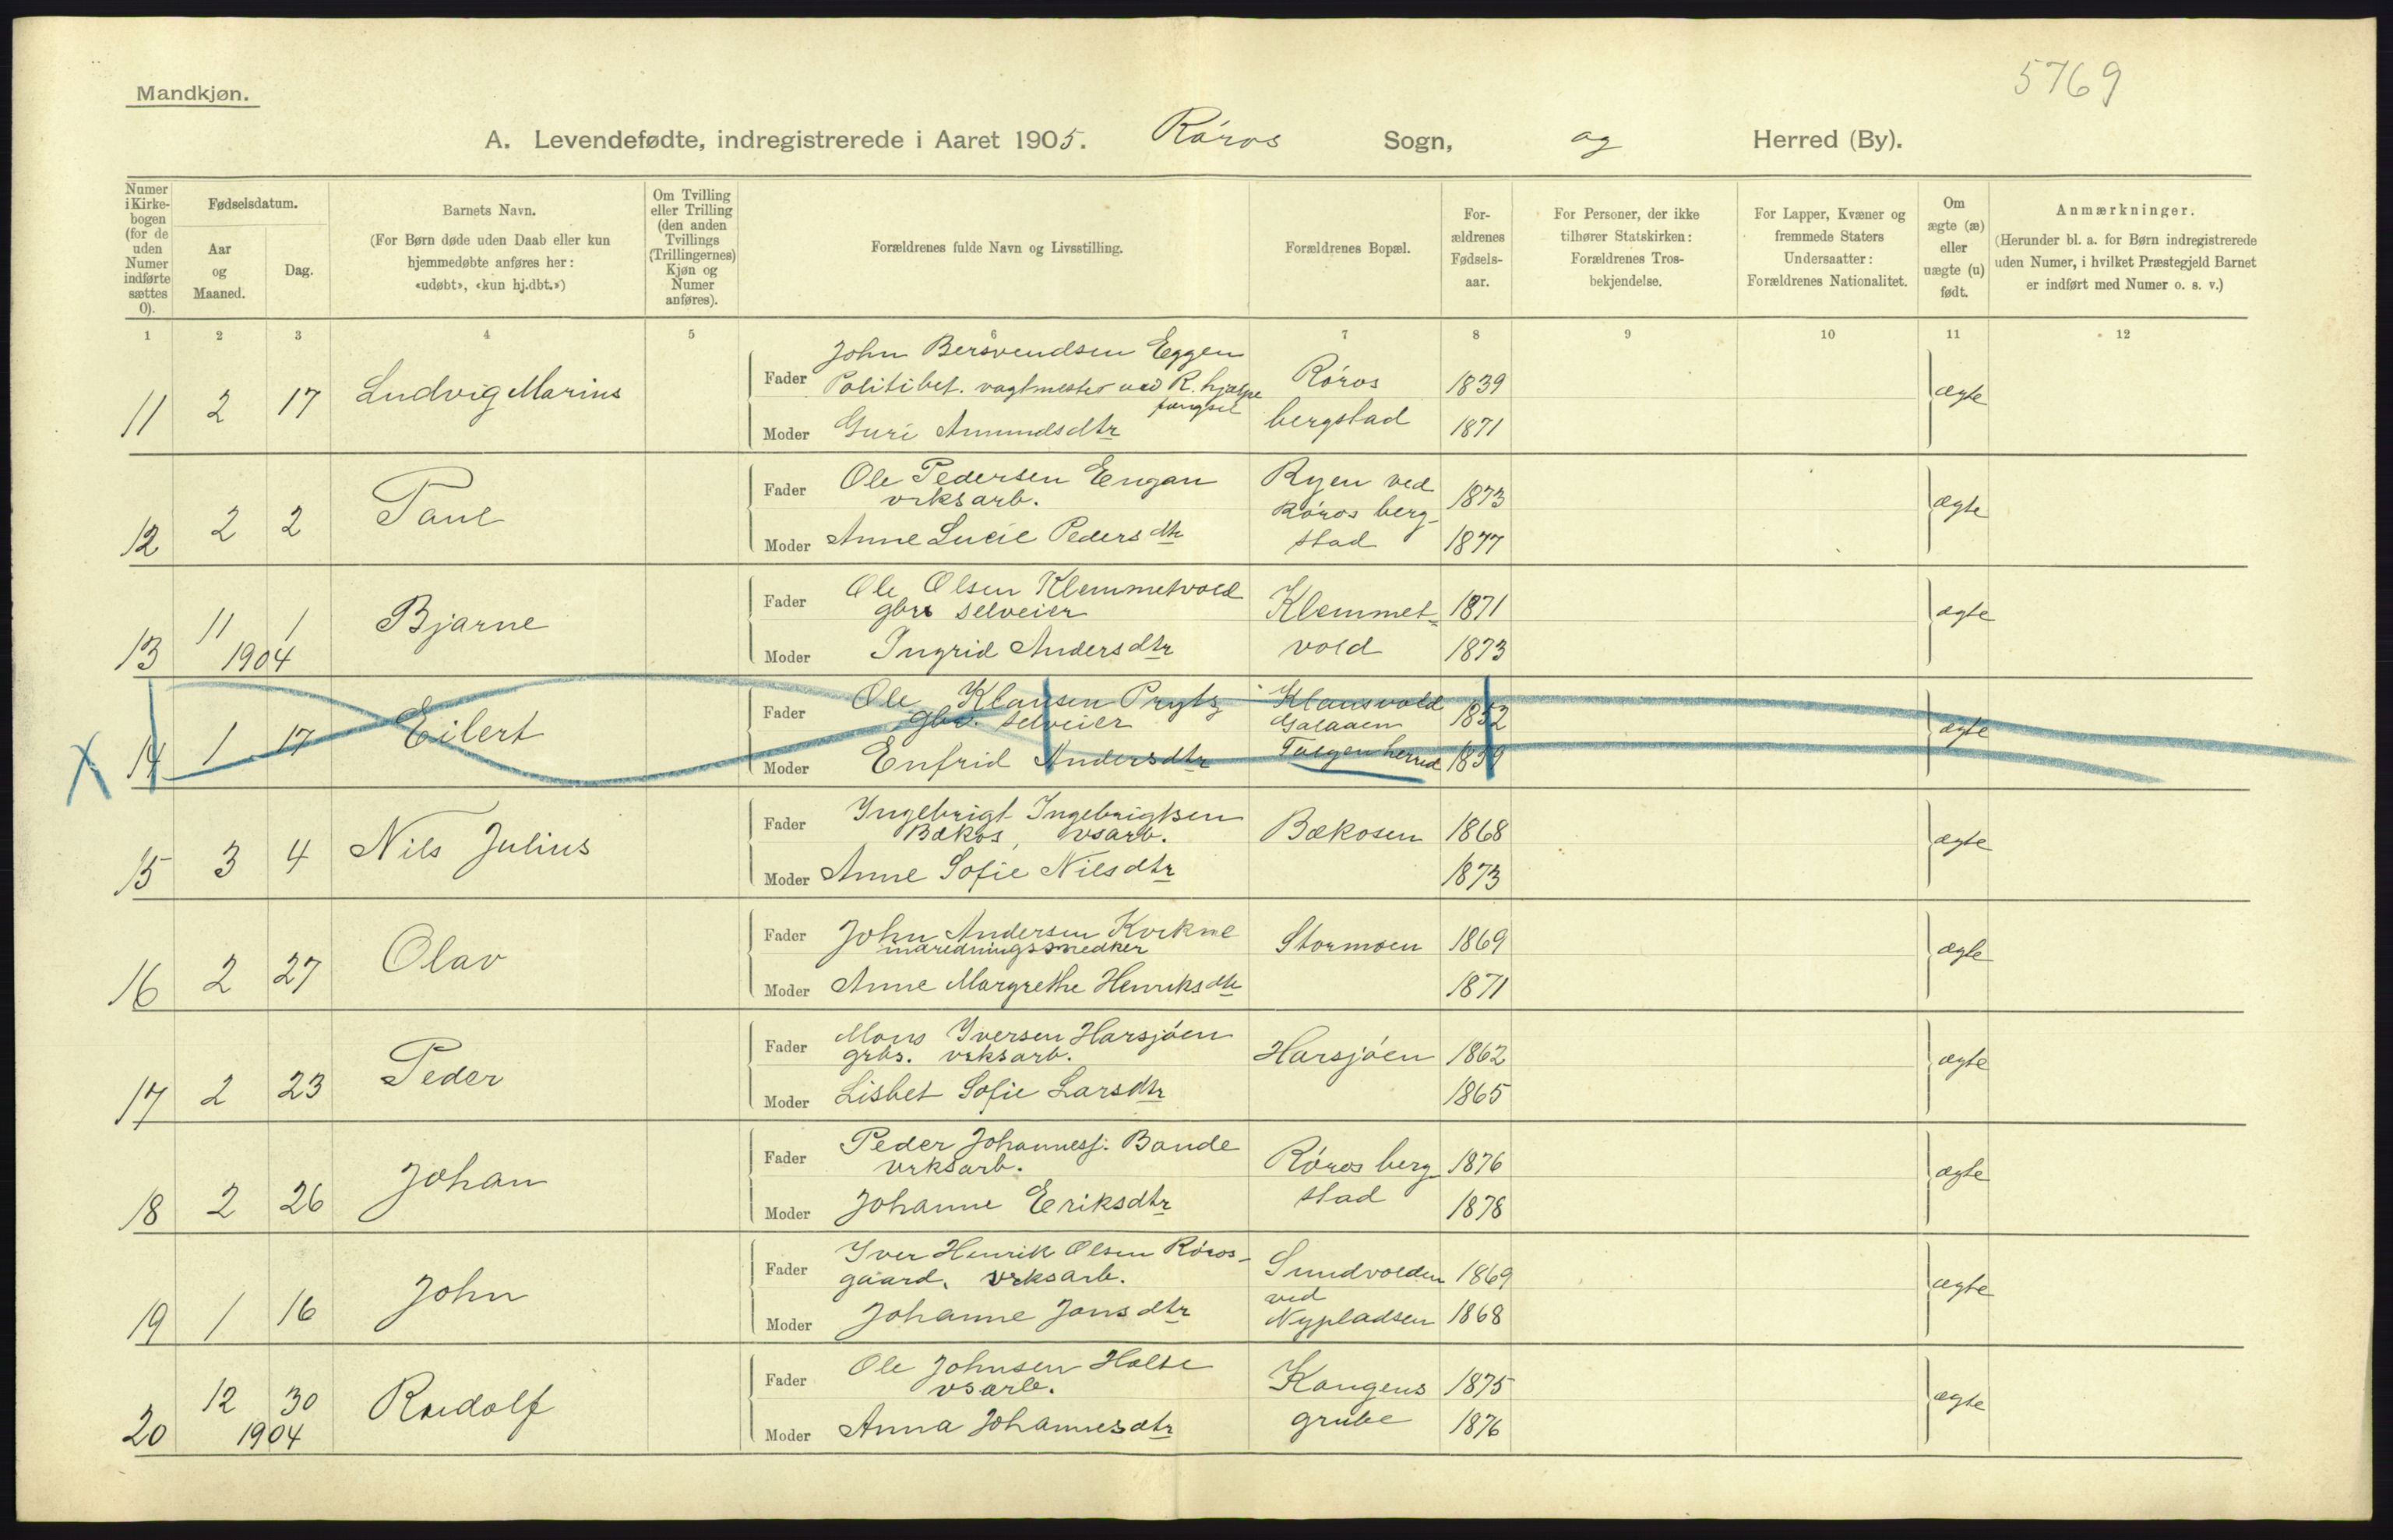 5769
Mandkjøn.
A. Levendefødte, indregistrerede i Aaret 1905. Røros Sogn, og Herred (By).
Numer i Kirke- bogen (for de uden Numer indførte sættes 0).
Fødselsdatum.
Aar og Maaned.
Dag.
Barnets Navn.
(For Børn døde uden Daab eller kun hjemmedøbte anføres her: «udøbt», «kun hj.dbt.»)
Om Tvilling eller Trilling (den anden Tvillings (Trillingernes) Kjøn og Numer anføres).
Forældrenes fulde Navn og Livsstilling.
Forældrenes Bopæl.
For- ældrenes Fødsels- aar.
For Personer, der ikke tilhører Statskirken: Forældrenes Tros- bekjendelse.
For Lapper, Kvæner og fremmede Staters Undersaatter: Forældrenes Nationalitet.
Om ægte (æ) eller uægte (u) født.
Anmærkninger.
(Herunder bl. a. for Børn indregistrerede uden Numer, i hvilket Præstegjeld Barnet er indført med Numer o. s. v.)
1 2 3 4 5 6 7 8 9 10 11 12
11 2 17 Ludvig Marius
Fader John Bersvendsen Eggen
Politibet. vagtmester ved R. hjælpe
fængsel
Moder Guri Amundsdtr
Røros
bergstad
1839
1871
ægte
12 2 2 Paul
Fader Ole Pedersen Engan
vrksarb.
Moder Anne Lucie Pedersdtr
Ryen ved
Røros berg-
stad
1873
1877
ægte
13 11 1 Bjarne
1904
Fader Ole Olsen Klemmetvold
gbr selveier
Moder Ingrid Andersdtr
Klemmet-
vold
1871
1873
ægte
X 14 1 17 Eilert
Fader Ole Klausen Prytz
gbr. selveier
Moder Enfrid Andersdtr
Klausvold
Galaaen
Tolgen herred
1852
1859
ægte
15 3 4 Nils Julius
Fader Ingebrigt Ingebrigtsen
Bækos, vsarb.
Moder Anne Sofie Nilsdtr
Bækosen
1868
1873
ægte
16 2 27 Olav
Fader John Andersen Kvikne
Moder Anne Margrethe Henriksdtr
Stormoen
1869
1871
ægte
17 2 23 Peder
Fader Mons Iversen Harsjøen
grbs. vrksarb.
Moder Lisbet Sofie Larsdtr
Harsjøen
1862
1865
ægte
18 2 26 Johan
Fader Peder Johanness. Bonde
vrksarb.
Moder Johanne Eriksdtr
Røros berg-
stad
1876
1878
ægte
19 1 16 John
Fader Iver Henrik Olsen Røros-
gaard, vrksarb.
Moder Johanne Jonsdtr
Sundvolden
ved
Nypladsen
1869
1868
ægte
20 12 30 Rudolf
1904
Fader Ole Johnsen Holte
vsarb.
Moder Anna Johannesdtr
Kongens
grube
1875
1876
ægte